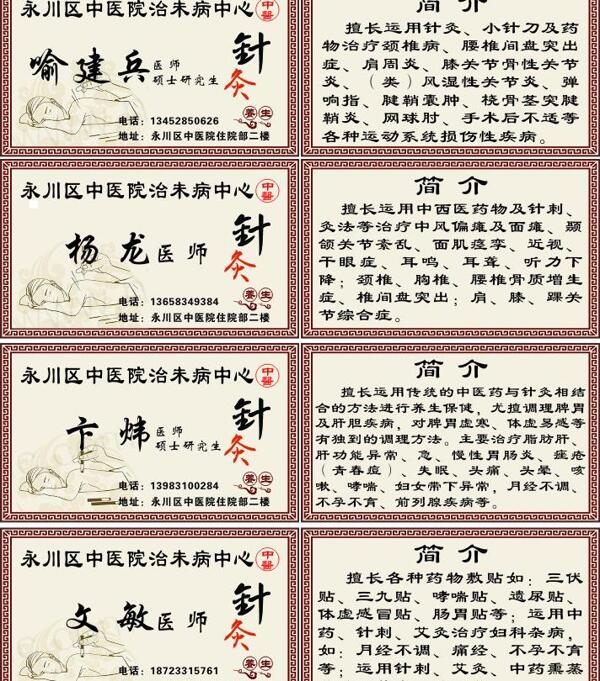 永川区中医院治未病中心 中醫
喻建兵 医师
硕士研究生
针灸
养生
电话：13452850626
地址：永川区中医院住院部二楼
简介
擅长运用针灸、小针刀及药
物治疗颈椎病、腰椎间盘突出
症、肩周炎、膝关节骨性关节
炎、（类）风湿性关节炎、弹
响指、腱鞘囊肿、桡骨茎突腱
鞘炎、网球肘、手术后不适等
各种运动系统损伤性疾病。
永川区中医院治未病中心 中醫
杨龙医师
针灸
养生
电话：13658349384
地址：永川区中医院住院部二楼
简介
擅长运用中西医药物及针刺、
灸法等治疗中风偏瘫及面瘫、颞
颌关节紊乱、面肌痉挛、近视、
干眼症、耳鸣、耳聋、听力下
降；颈椎、胸椎、腰椎骨质增生
症、椎间盘突出；肩、膝、踝关
节综合症。
永川区中医院治未病中心 中醫
卞炜 医师
硕士研究生
针灸
养生
电话：13983100284
地址：永川区中医院住院部二楼
简介
擅长运用传统的中医药与针灸相结
合的方法进行养生保健，尤擅调理脾胃
及肝胆疾病，对脾胃虚寒、体虚易感等
有独到的调理方法。主要治疗脂肪肝、
肝功能异常、急、慢性胃肠炎、痤疮
（青春痘）、失眠、头痛、头晕、咳
嗽、哮喘、妇女带下异常，月经不调、
不孕不育、前列腺疾病等。
永川区中医院治未病中心 中醫
文敏医师
针灸
养生
电话：18723315761
简介
擅长各种药物敷贴如：三伏
贴、三九贴、哮喘贴、遗尿贴、
体虚感冒贴、肠胃贴等；运用中
药、针刺、艾灸治疗妇科杂病，
如：月经不调、痛经、不孕不育
等；运用针刺、艾灸、中药熏蒸